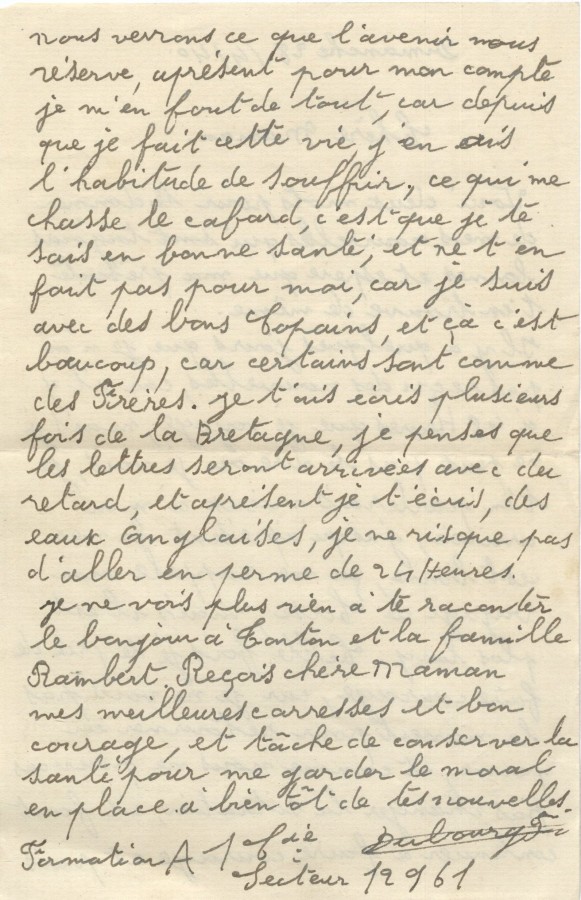 nous verrons ce que l'avenir nous
réserve, aprésent pour mon compte
je m'en fout de tout, car depuis
que je fait cette vie, j'en ais
l'habitude de souffrir, ce qui me
chasse le cafard, c'est que je te
sais en bonne santé, et ne t'en
fait pas pour moi, car je suis
avec des bons Copains, et çà c'est
baucoup, car certains sont comme
des Frères. je t'ais écris plusieurs
fois de la Bretagne, je penses que
les lettres seront arrivées avec du
retard, et aprésent je t'écris, des
eaux Anglaises, je ne risque pas
d'aller en perme de 24 Heures.
je ne vois plus rien à te raconter
le bonjour à Tonton et la famille
Rambert. Reçois chère Maman
mes meilleures carresses et bon
courage, et tâche de conserver la
santé pour me garder le moral
en place. à bientôt de tes nouvelles.
Formation A 1 Cie Dubourg
Secteur 12961